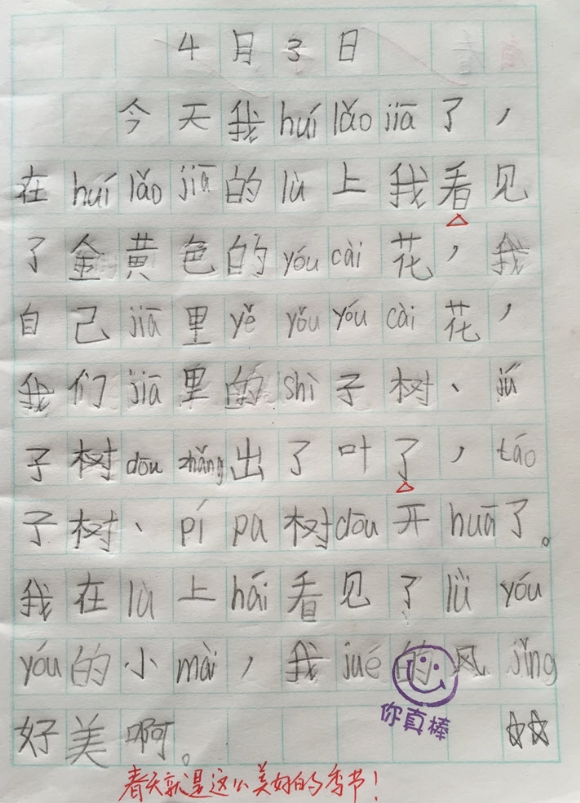 4月3日
今天我huí lǎo jiā了，
在huí lǎo jiā的lù上我看见
了金黄色的yóu cài花，我
自己jiā里yě yǒu yóu cài花，
我们jiā里的shì子树、jú
子树dōu zhǎng出了叶了，táo
子树、pí pa树dōu开huā了。
我在lù上hái看见了lǜ yóu
yóu的小mài，我jué的风jǐng
好美啊。
你真棒
春天就是这么美好的季节！